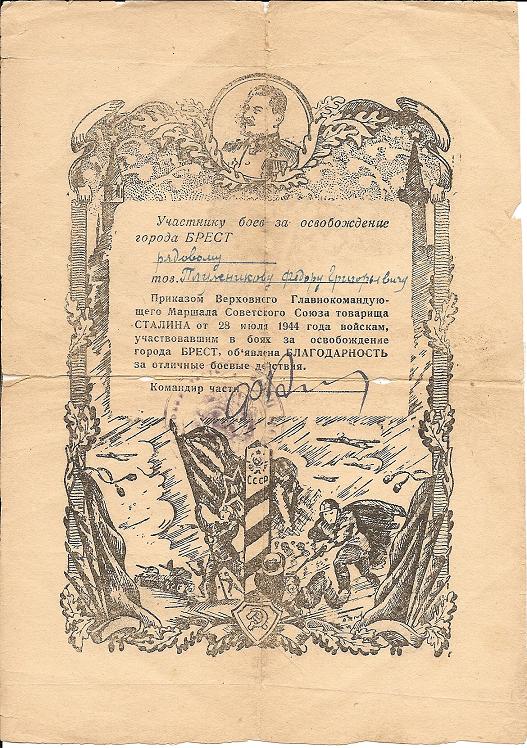 Участнику боев за освобождение
города БРЕСТ
рядовому
тов. Плужникову Федору Григорьевичу
Приказом Верховного Главнокомандую-
щего Маршала Советского Союза товарища
СТАЛИНА от 28 июля 1944 года войскам,
участвовавшим в боях за освобождение
города БРЕСТ, об'явлена БЛАГОДАРНОСТЬ
за отличные боевые действия.
Командир части
СССР